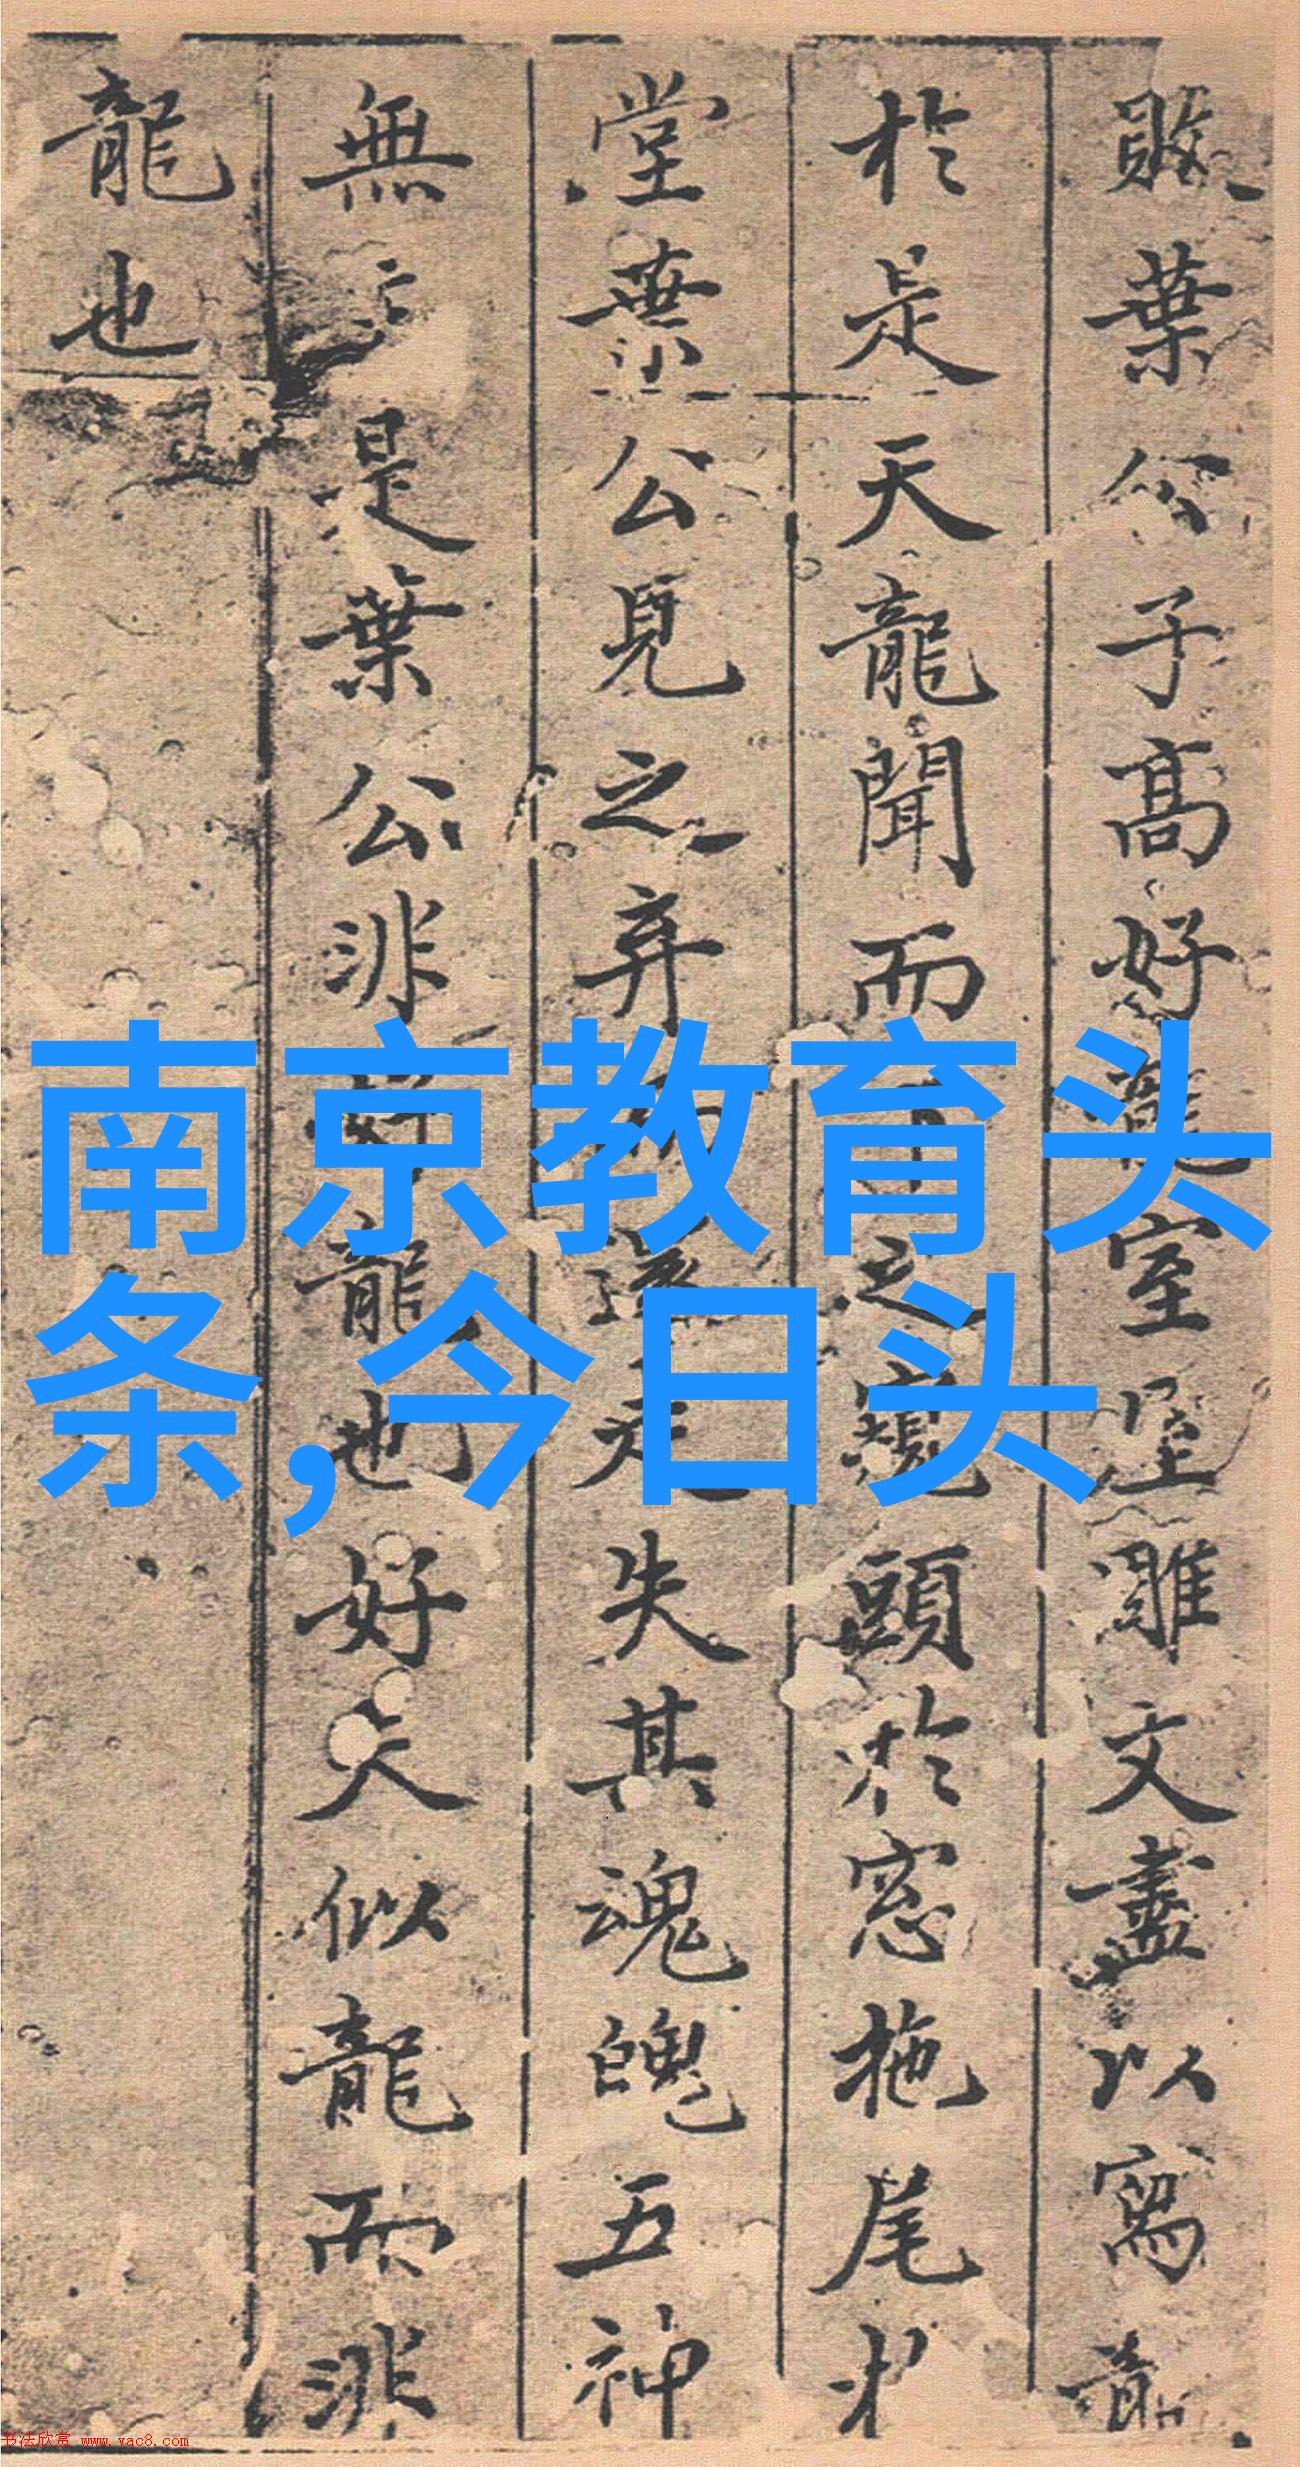 敗葉公子高好龍室屋雕文盡以寫龍
於是天龍聞而下之窺頭於窓拖尾於
堂葉公見之弃而還走失其魂魄五神
無主是葉公非好龍也好夫似龍而非
龍也
南京教育头
条,今日头
书法欣赏 www.yac8.com